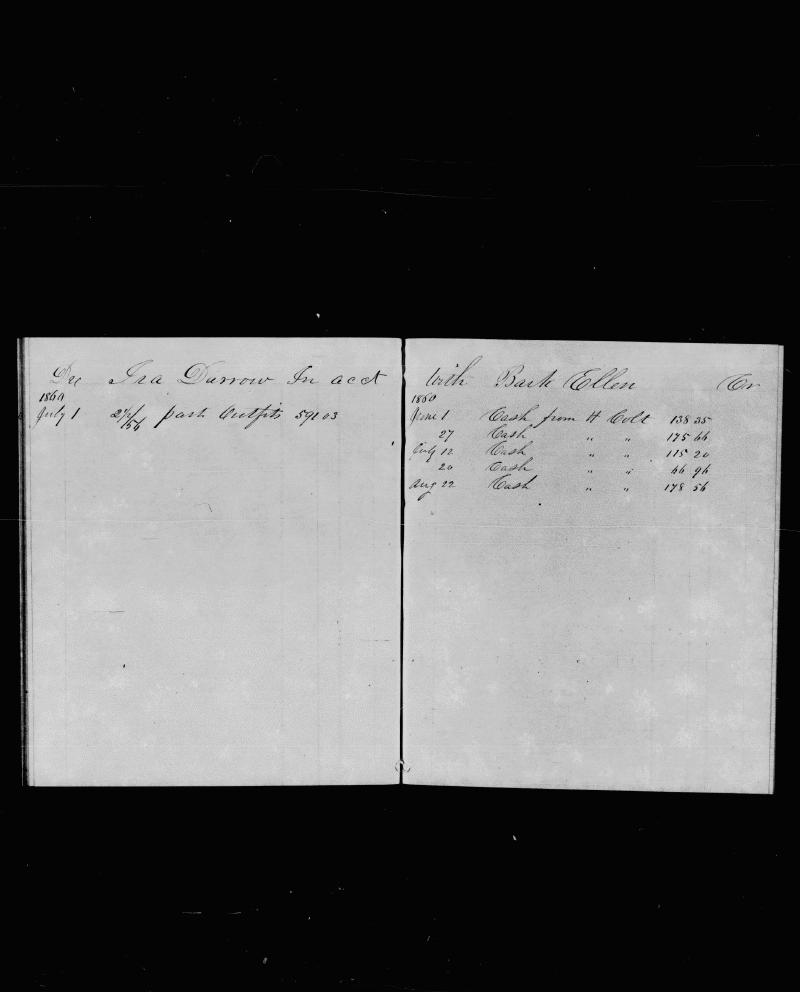 Ira Darrow In acct
1860
July 1 2 1/56 part Outfits 591 03
With Bark Ellen Cr
1860
June 1 Cash from H Colt 138 35
27 Cash " " 175 66
July 12 Cash " " 115 20
20 Cash " " 46 96
Aug 22 Cash " " 178 56